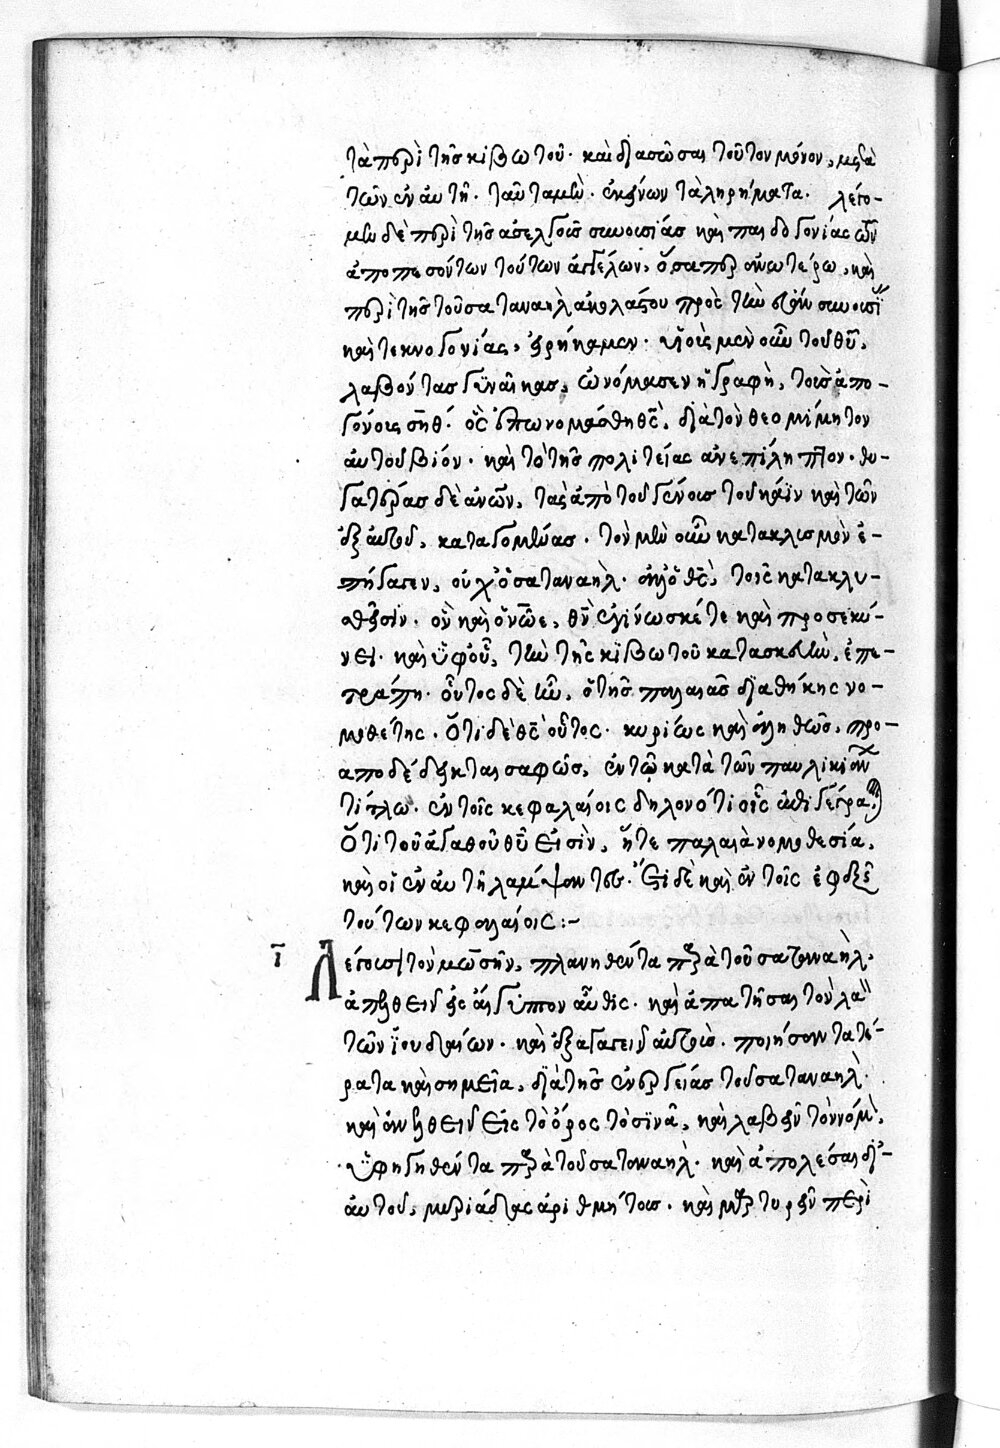 τὰ περὶ τῆς κιβωτοῦ· καὶ διασῶσαι τοῦτον μόνον, μετὰ
τῶν ἐν αὐτῆ· ταῦτα μὲν ἐκείνων τὰ ληρήματα· λέγο-
μεν δὲ περὶ τῆς ἀσελγοῦς συνουσίας καὶ παιδογονίας τῶν
ἀποπεσόντων τούτων ἀγγέλων, ὅσαπερ ἀνωτέρω, καὶ
περὶ τῆς τοῦ σαταναὴλ πρὸς τὴν εὔαν συνουσί
καὶ τεκνογονίας, εἰρήκαμεν· υἱοὺς μὲν οὖν τοῦ θῦ,
λαβόντας γυναῖκας, ὠνόμασεν ἡ γραφὴ, τοὺς ἀπο-
γόνους σηθ· ὃς ἐπωνομάσθη θς, διὰ τὸν θεομίμητον
αὐτοῦ βίον· καὶ τὸ τῆς πολιτείας ἀνεπίληπτον· θυ-
γατέρας δὲ ἀνων, τὰς ἀπὸ τοῦ γένους τοῦ κάϊν καὶ τῶν
ἐξ αὐτοῦ, καταγομένας· τὸν μὲν οὖν κατακλυσμὸν ἐ-
πήγαγεν, οὐχ ὁ σαταναὴλ· ἀλλ' ὁ θς, τοῖς κατακλυ-
σθεῖσιν· ὃν καὶ ὁ νῶε, θν ἐγίνωσκέ τε καὶ προσεκύ-
νει· καὶ ὑφ' οὗ, τὴν τῆς κιβωτοῦ κατασκευὴν, ἐπε-
τράπη· οὗτος δὲ ἦν, ὁ τῆς παλαιᾶς διαθήκης νο-
μοθέτης· ὅτι δὲ θς οὗτος· κυρίως καὶ ἀληθῶς, προ-
αποδέδεικται σαφῶς, ἐν τῶ κατὰ τῶν παυλικιαν
τίτλω· ἐν τοῖς κεφαλαίοις δηλονότι οἷς ἐπιγέγραπται
ὅτι τοῦ ἀγαθοῦ θῦ εἰσὶν, ἥτε παλαιὰ νομοθεσία,
καὶ οἱ ἐν αὐτῆ λάμψαντες· ἔτι δὲ καὶ ἐν τοῖς ἐφεξῆς
τούτων κεφαλαίοις:-
ι Λέγουσι τὸν μωσῆν, πλανηθέντα παρὰ τοῦ σαταναὴλ,
ἀπελθεῖν εἰς αἴγυπτον αὖθις· καὶ ἀπατῆσαι τὸν λα
τῶν ἰουδαίων· καὶ ἐξαγαγεῖν αὐτοὺς· ποιήσαντα τέ-
ρατα καὶ σημεῖα, διὰ τῆς ἐνεργείας τοῦ σαταναὴλ·
καὶ ἀνελθεῖν εἰς τὸ ὄρος τὸ σϊνᾶ, καὶ λαβεῖν τὸν νόμ,
ὑφηγηθέντα παρὰ τοῦ σαταναὴλ· καὶ ἀπολέσαι δι'-
αὐτοῦ, μυριάδας ἀριθμήτους· καὶ μαρτυρεῖν περὶ